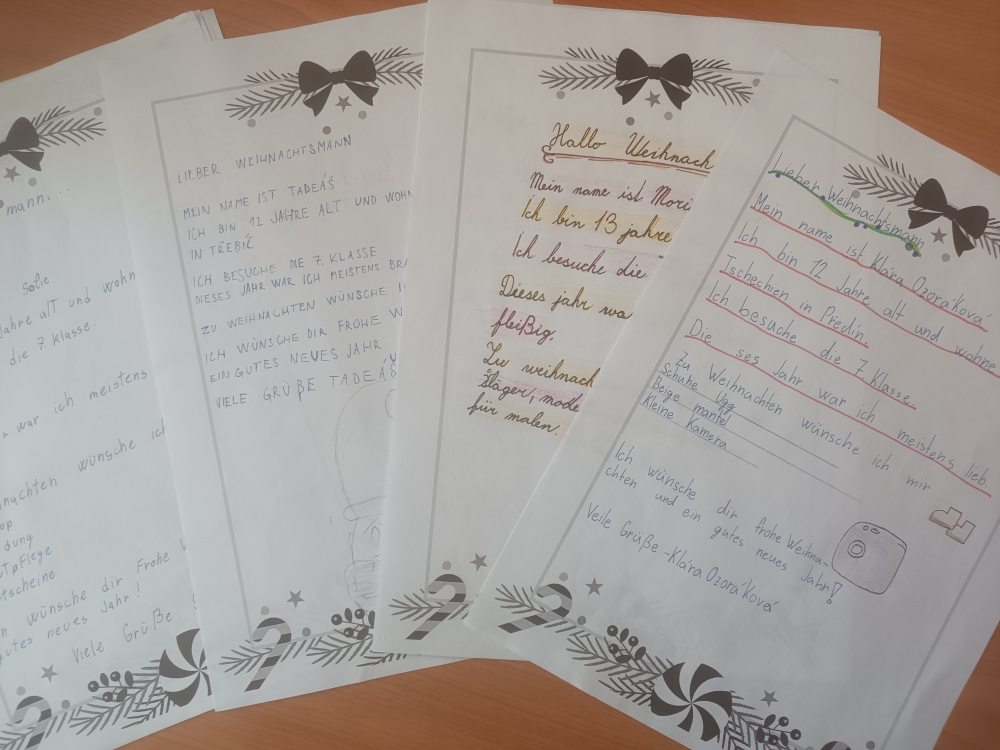 mann...
Sofie
Jahre alT und wohn
die 7. klasse.
r war ich meistens
nachten wünsche ich
op
dung
utpflege
tscheine
n wünsche dir Frohe
gutes neues Jahr!
Viele Grüße
LIEBER WEIHNACHTSMANN
MEIN NAME IST TADEÁŠ
ICH BIN 12 JAHRE ALT UND WOHN
IN TŘEBÍČ
ICH BESUCHE DIE 7. KLASSE
DIESES JAHR WAR ICH MEISTENS BRA
ZU WEIHNACHTEN WÜNSCHE I
ICH WÜNSCHE DIR FROHE W
EIN GUTES NEUES JAHR
VIELE GRÜßE TADEÁŠ
Hallo Weihnach
Mein name ist Mori
Ich bin 13 jahre
Ich besuche die
Dieses jahr wa
fleißig.
Zu weihnach
šläger, mode
für malen.
Lieber Weihnachtsmann
Mein name ist Klára Ozoráková
Ich bin 12 Jahre alt und wohne
Tschechien in Předín.
Ich besuche die 7. Klasse.
Die ses Jahr war ich meistens lieb.
Zu Weihnachten wünsche ich mir
Schuhe Ugg
Beige mantel
Kleine Kamera
Ich wünsche dir frohe Weihna-
chten und ein gutes neues Jahr!
Veile Grüße -Klára Ozoráková